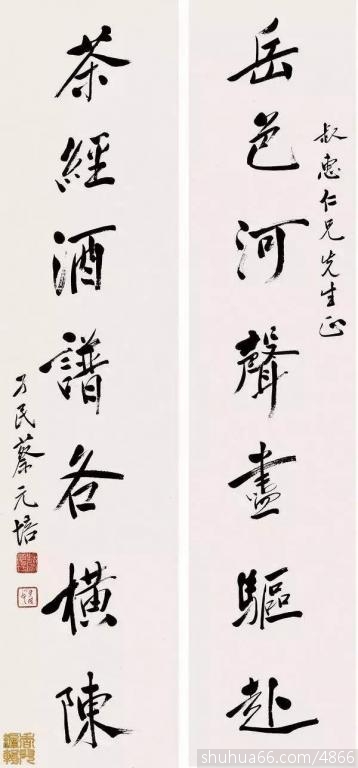 叔惠仁兄先生正
岳色河聲盡驅赴
茶經酒譜各橫陳
孑民蔡元培
shuhua66.com/4866